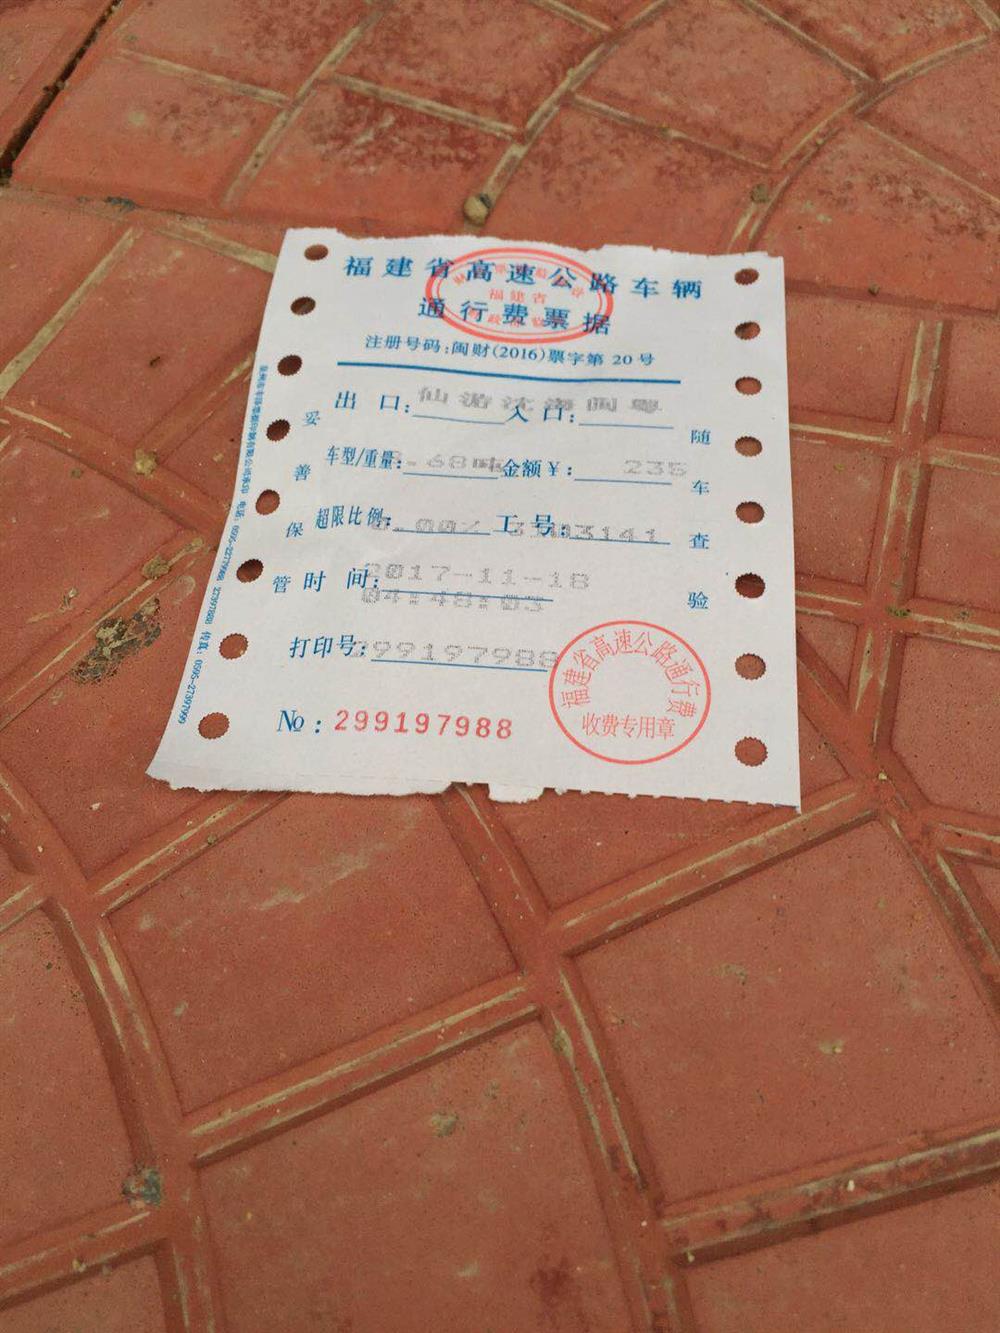 福建省高速公路车辆
福建省
通行费票据
注册号码:闽财(2016)票字第 20 号
出 口: 仙游沈海闽粤 入 口:
车型/重量: 8.68吨 金额¥: 235
超限比例: 0.00% 工 号: 3103141
时 间: 2017-11-18
04:48:03
打印号: 299197988
№: 299197988
妥善保管
随车查验
福建省高速公路通行费
收费专用章